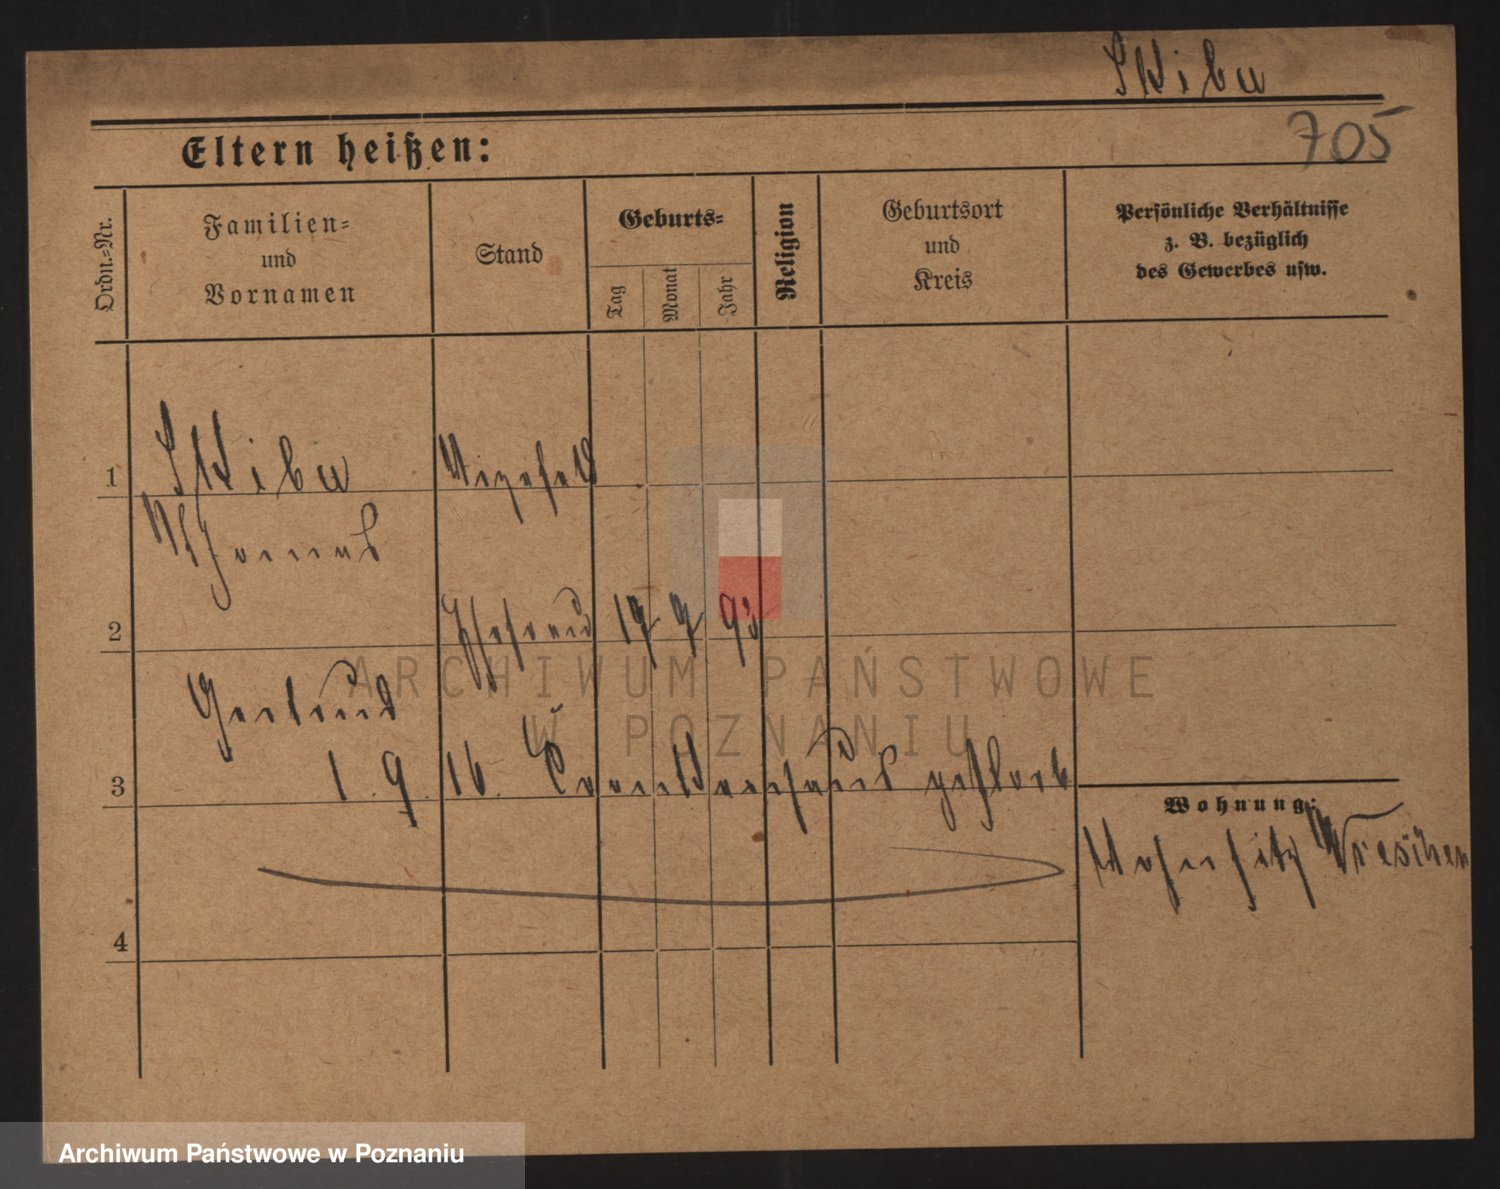 Skiba
705
Eltern heißen:
Ordn.=Nr.
Familien=
und
Vornamen
Stand
Geburts=
Tag
Monat
Jahr
Religion
Geburtsort
und
Kreis
Persönliche Verhältnisse
z. B. bezüglich
des Gewerbes usw.
1
Skiba
Vizefeld
Thomas
2
Ehefrau 17 9 93
Gertrud
3
1. 9. 16.
Wohnung:
Wohnsitz Wreschen
4
ARCHIWUM PAŃSTWOWE
W POZNANIU
Archiwum Państwowe w Poznaniu